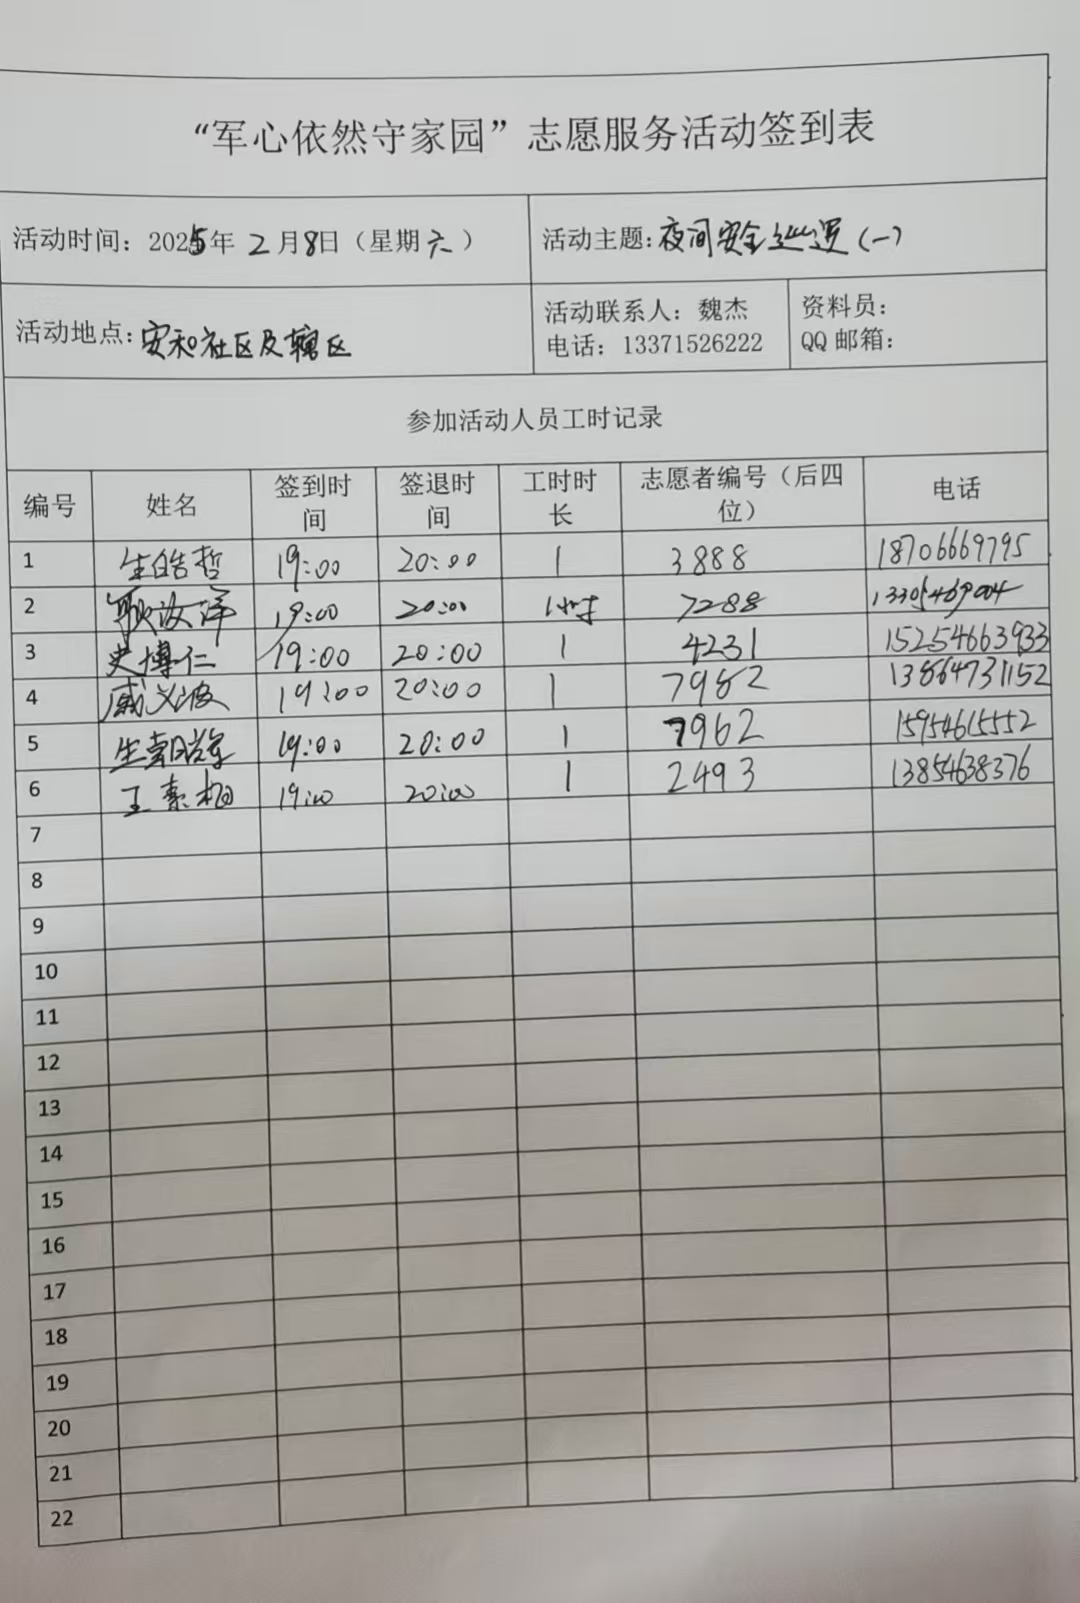 “军心依然守家园”志愿服务活动签到表
活动时间：2025年 2月8日（星期六）
活动主题：夜间安全巡逻（一）
活动地点：安和社区及辖区
活动联系人：魏杰
电话：13371526222
资料员：
QQ邮箱：
参加活动人员工时记录
编号 姓名 签到时间 签退时间 工时时长 志愿者编号（后四位） 电话
1 生皓哲 19:00 20:00 1 3888 18706669795
2 耿汝洋 19:00 20:00 1小时 7288
3 史博仁 19:00 20:00 1 4231 15254663933
4 戚义波 19:00 20:00 1 7982 13864731152
5 19:00 20:00 1 7962 15954615552
6 王素梅 19:00 20:00 1 2493 13854638376
7
8
9
10
11
12
13
14
15
16
17
18
19
20
21
22